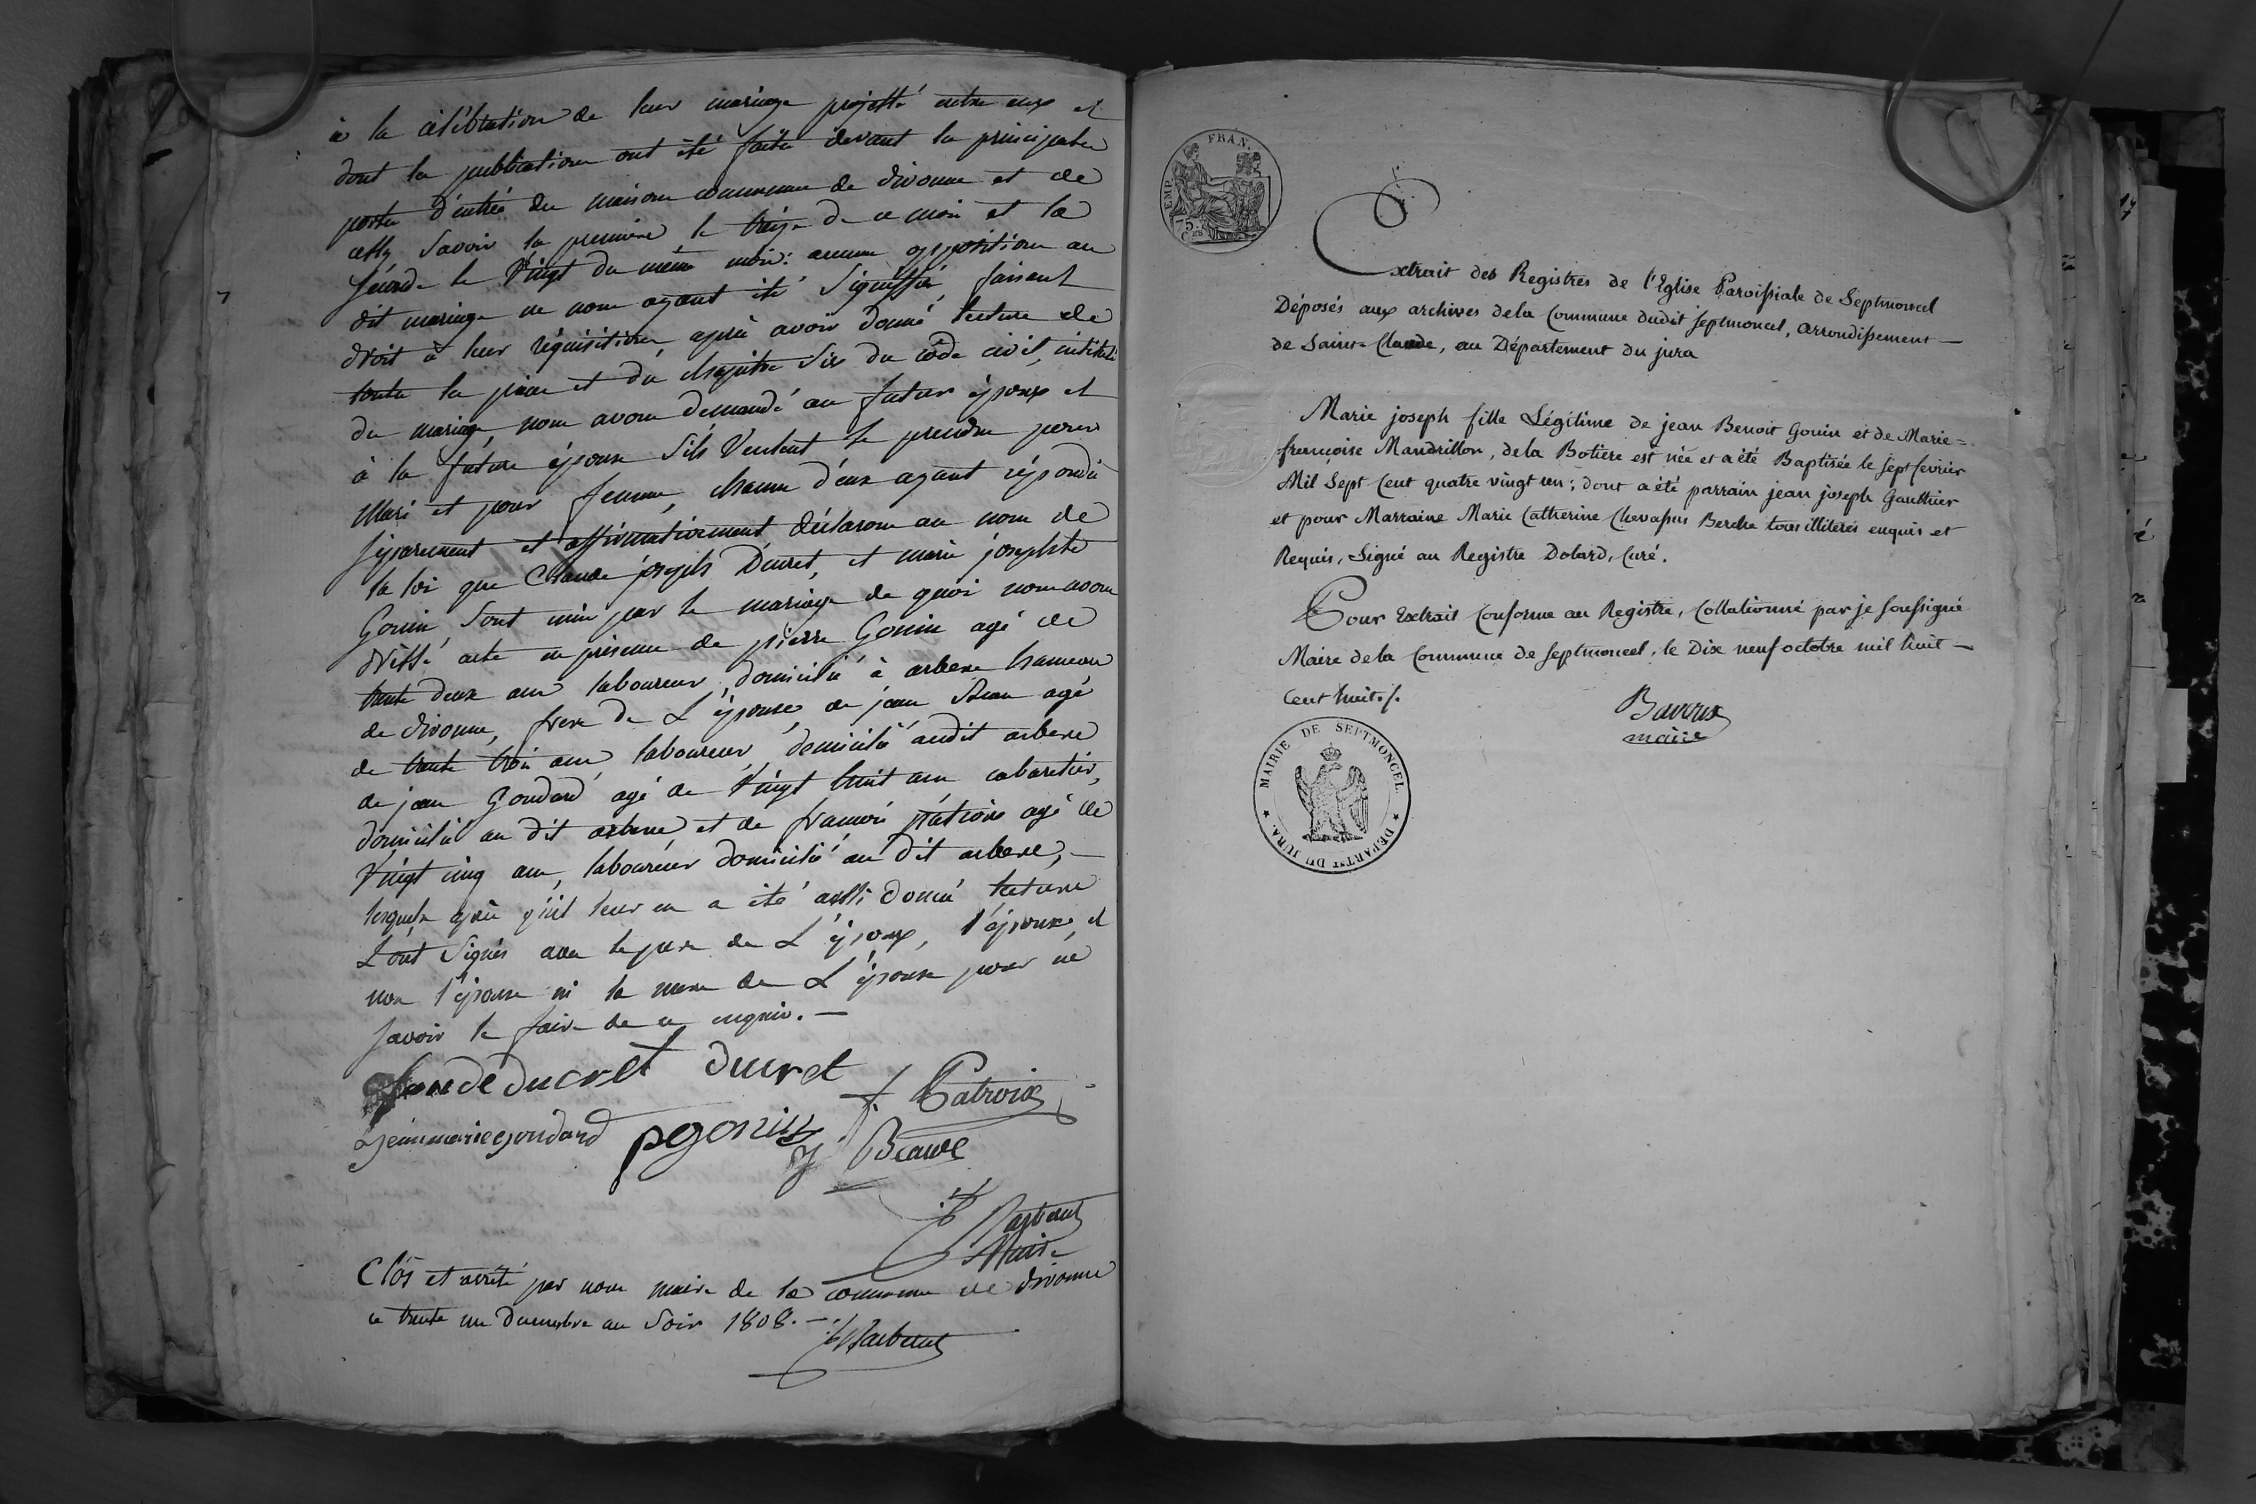 à la célébration de leur mariage projetté entre eux et
dont les publications ont été faites devant la principale
porte d'entrée des maisons communes de divonne et de
cessy, Savoir la premiere le treize de ce mois et la
seconde le Vingt du même mois: aucune opposition au
dit mariage ne nous ayant été Signiffiée, faisant
droit à leur réquisition, après avoir donné lecture de
toutes les pieces et du chapitre Six du code civil, intitulé
du mariage, nous avons demandé au futur époux et
à la future épouse S'ils Veulent se prendre pour
Mari et pour femme, chacun d'eux ayant répondu
séparement et affirmativement, déclarons au nom de
la loi que Claude joseph Ducret, et marie josephte
Gonin, Sont unis par le mariage de quoi nous avons
dréssé acte en présence de pierre Gonin agé de
trente deux ans laboureur, domicilié à arbere hameau
de divonne, frere de L'épouse, de jean agé
de trente trois ans laboureur, domicilié audit arbere
de jean Goudard agé de Vingt huit ans cabaretier,
domicilié au dit arbere, et de francois patroix agé de
Vingt cinq ans, laboureur domicilié au dit arbere, —
lesquels après qu'il leur en a été aussi donné lecture
L'ont Signés avec le pere de L'époux, l'époux, et
non l'épouse ni la mere de L'épouse pour ne
savoir le faire de ce enquis. —
Claude ducret ducret
f. Patroix
Jeanmarie goudard pgonin
J Beauve
Maire
Clos et arrêté par nous maire de la commune de divonne
ce trente un Decembre au Soir 1808. —
EMP. FRAN.
75 Ces
Extrait des Registres de l'Eglise Paroissiale de Septmoncel
Déposés aux archives de la Commune dudit septmoncel, arrondissement —
de Saint-Claude, au Département du jura
Marie joseph fille Légitime de jean Benoit Gonin et de Marie =
françoise Mandrillon, de la Botiere est née et a été Baptisée le sept fevrier
Mil Sept Cent quatre vingt un; dont a été parrain jean joseph Gauthier
et pour Marraine Marie Catherine Chevassus Berche tous illiterés enquis et
Requis, Signé au Registre Dolard, Curé.
Pour Extrait Conforme au Registre, Collationné par je soussigné
Maire de la Commune de septmoncel, le Dix neuf octobre mil huit —
Cent huit./.
Bavoux
maire
MAIRIE DE SEPTMONCEL.
★ DÉPART.T DU JURA. ★